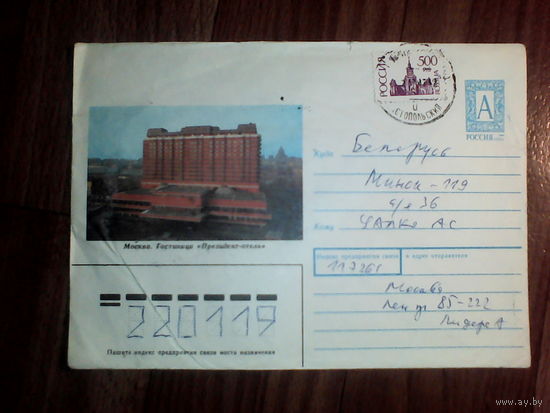 РОССИЯ
500
А
РОССИЯ
Куда
Беларусь
Минск-119
а/я 36
Кому
Москва. Гостиница «Президент-отель»
Индекс предприятия связи и адрес отправителя
117261
Москва
Лен пр 85-222
220119
Пишите индекс предприятия связи места назначения
www.ay.by